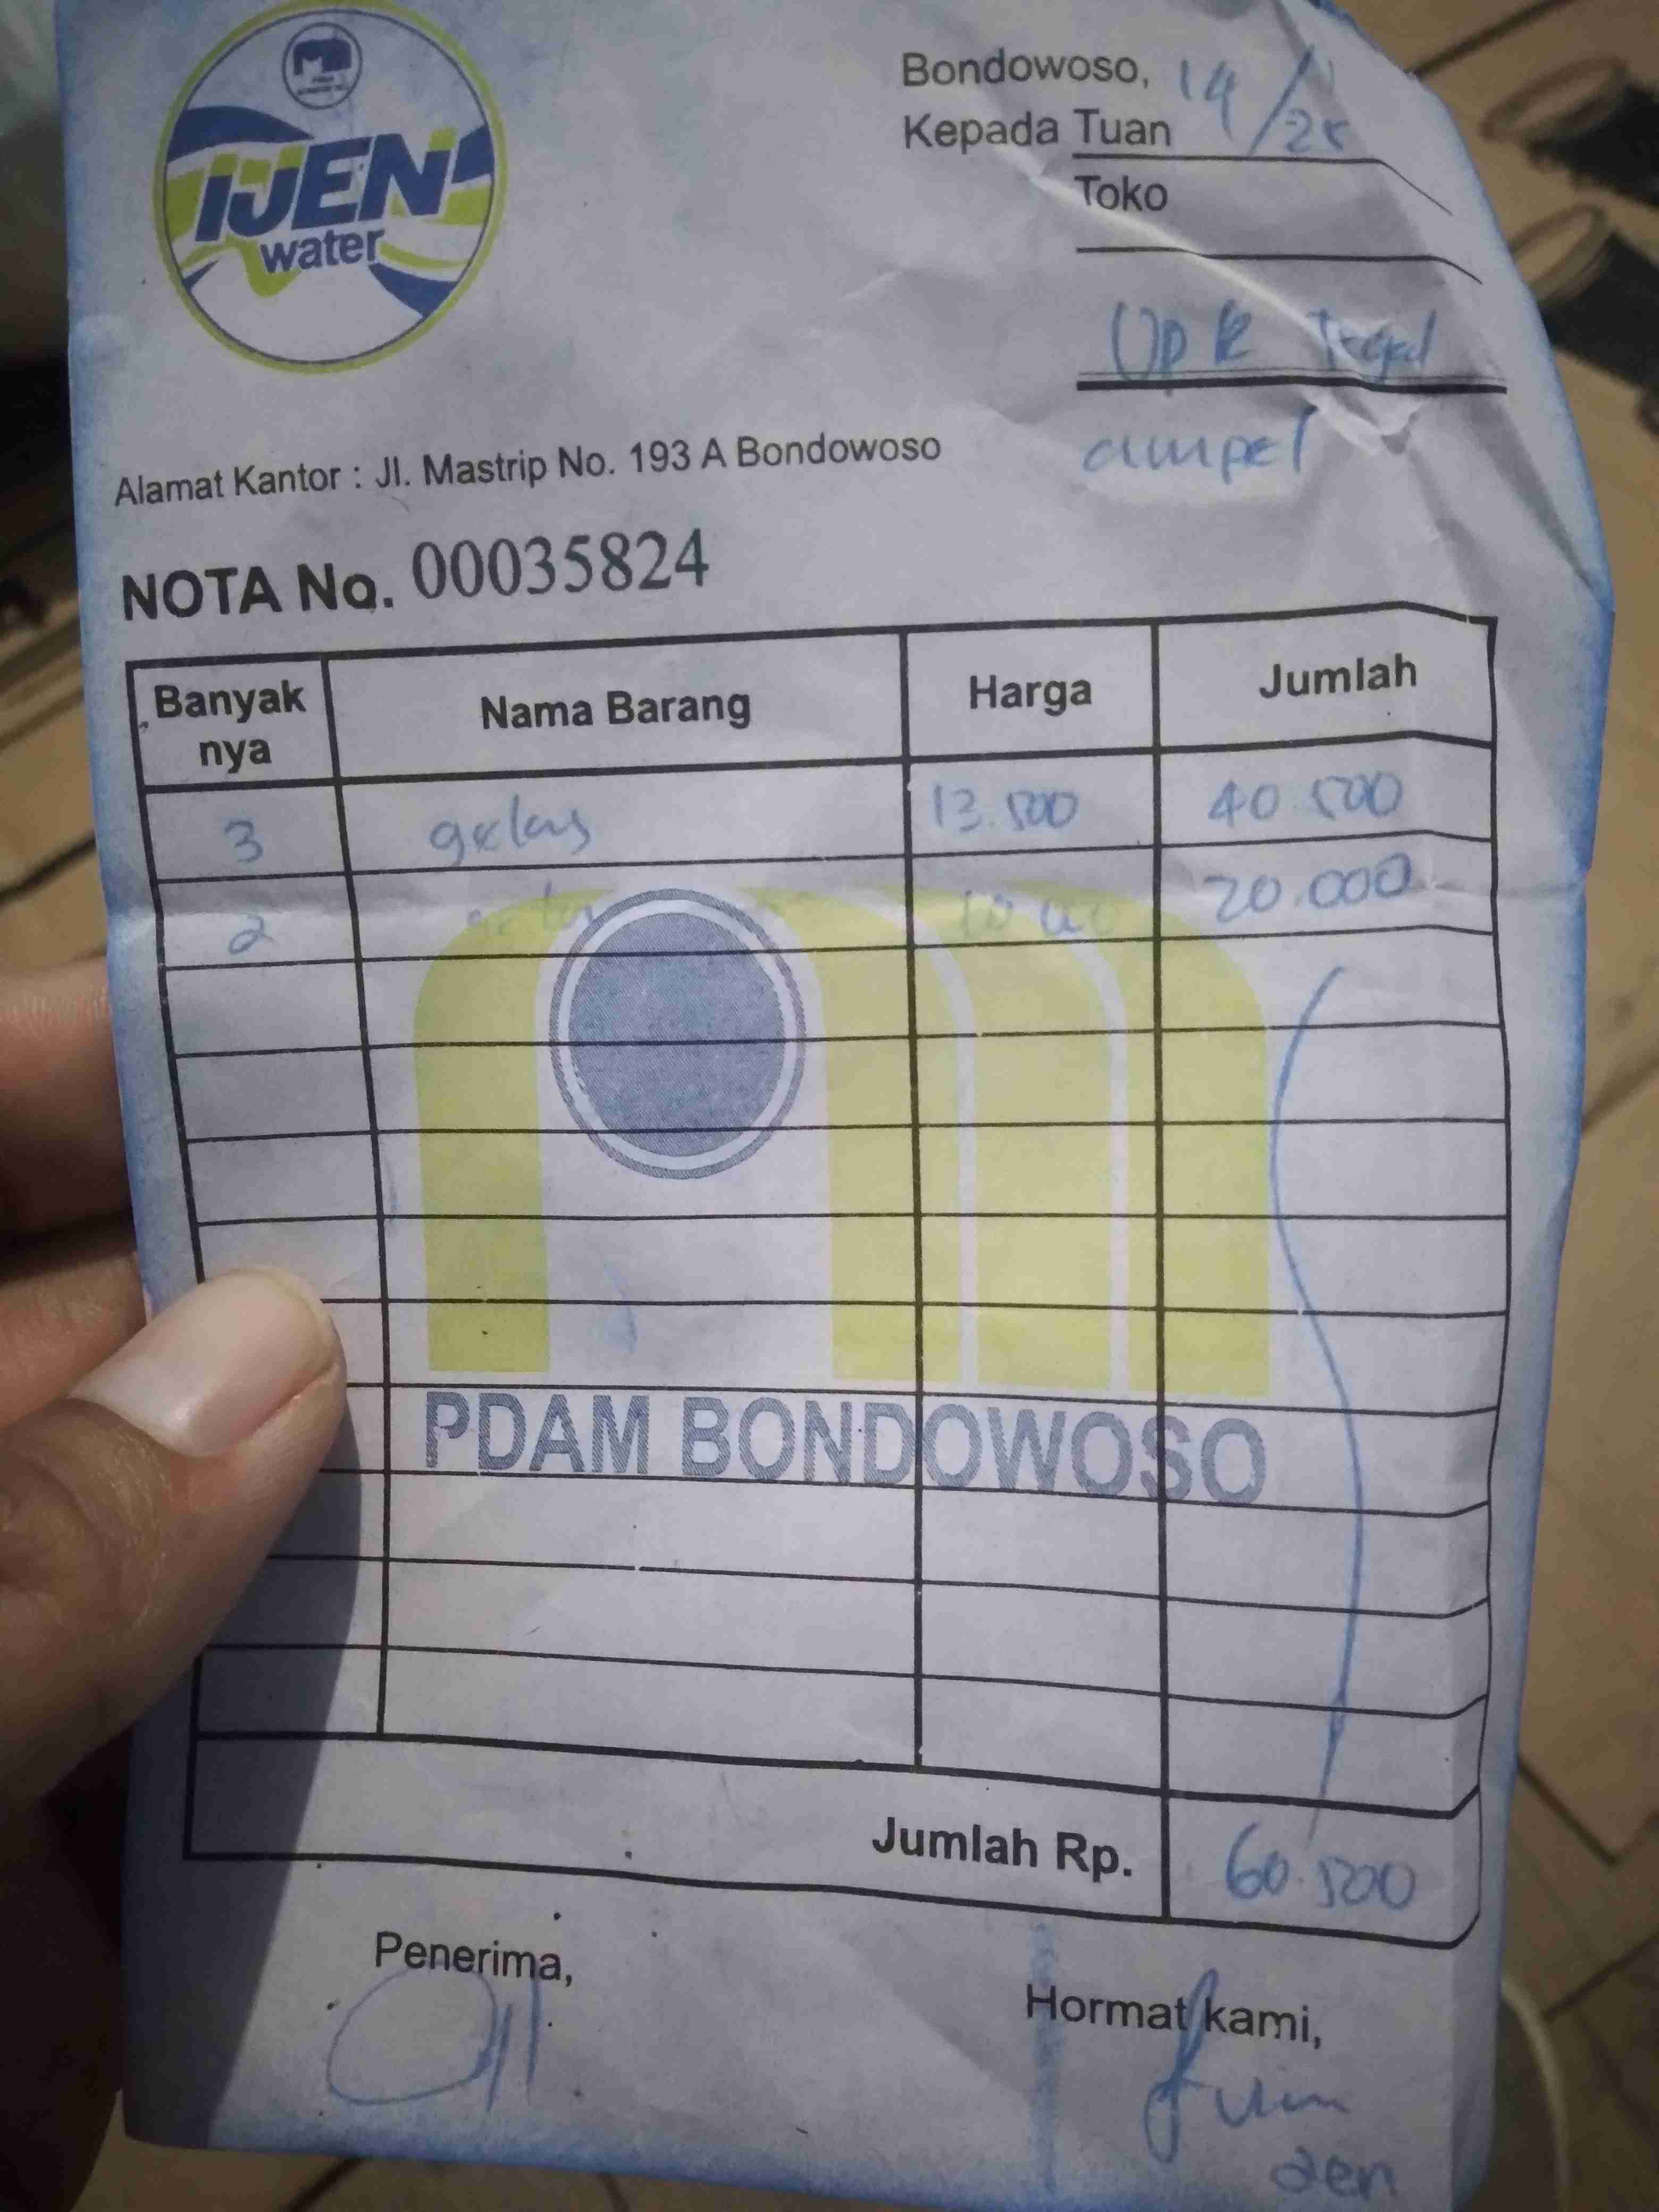 IJEN
water
Bondowoso, 14/25
Kepada Tuan
Toko
Upk Tegal
ampel
Alamat Kantor : Jl. Mastrip No. 193 A Bondowoso
NOTA No. 00035824
Banyak nya Nama Barang Harga Jumlah
3 gelas 13.500 40.500
2 gelas 10.000 20.000
PDAM BONDOWOSO
Jumlah Rp. 60.500
Penerima,
Hormat kami,